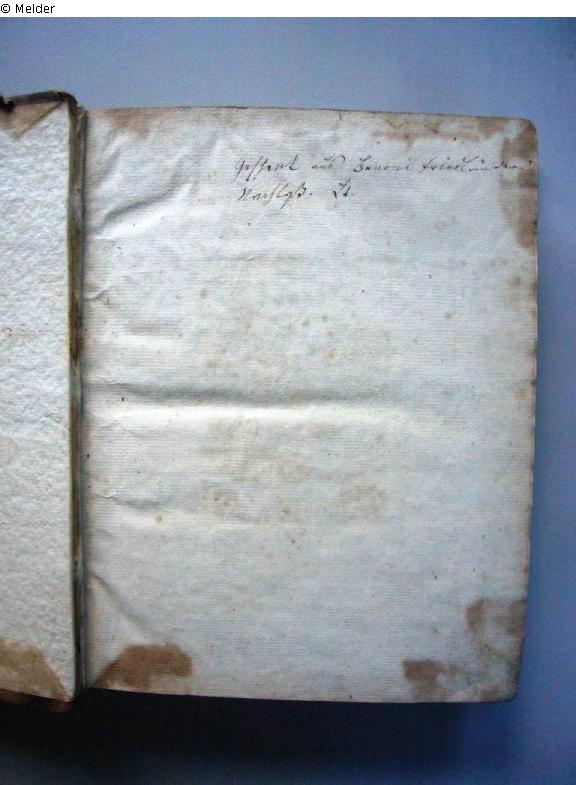 © Melder
Geschenk aus Benoni Friedländers
Nachlaß. Lt.